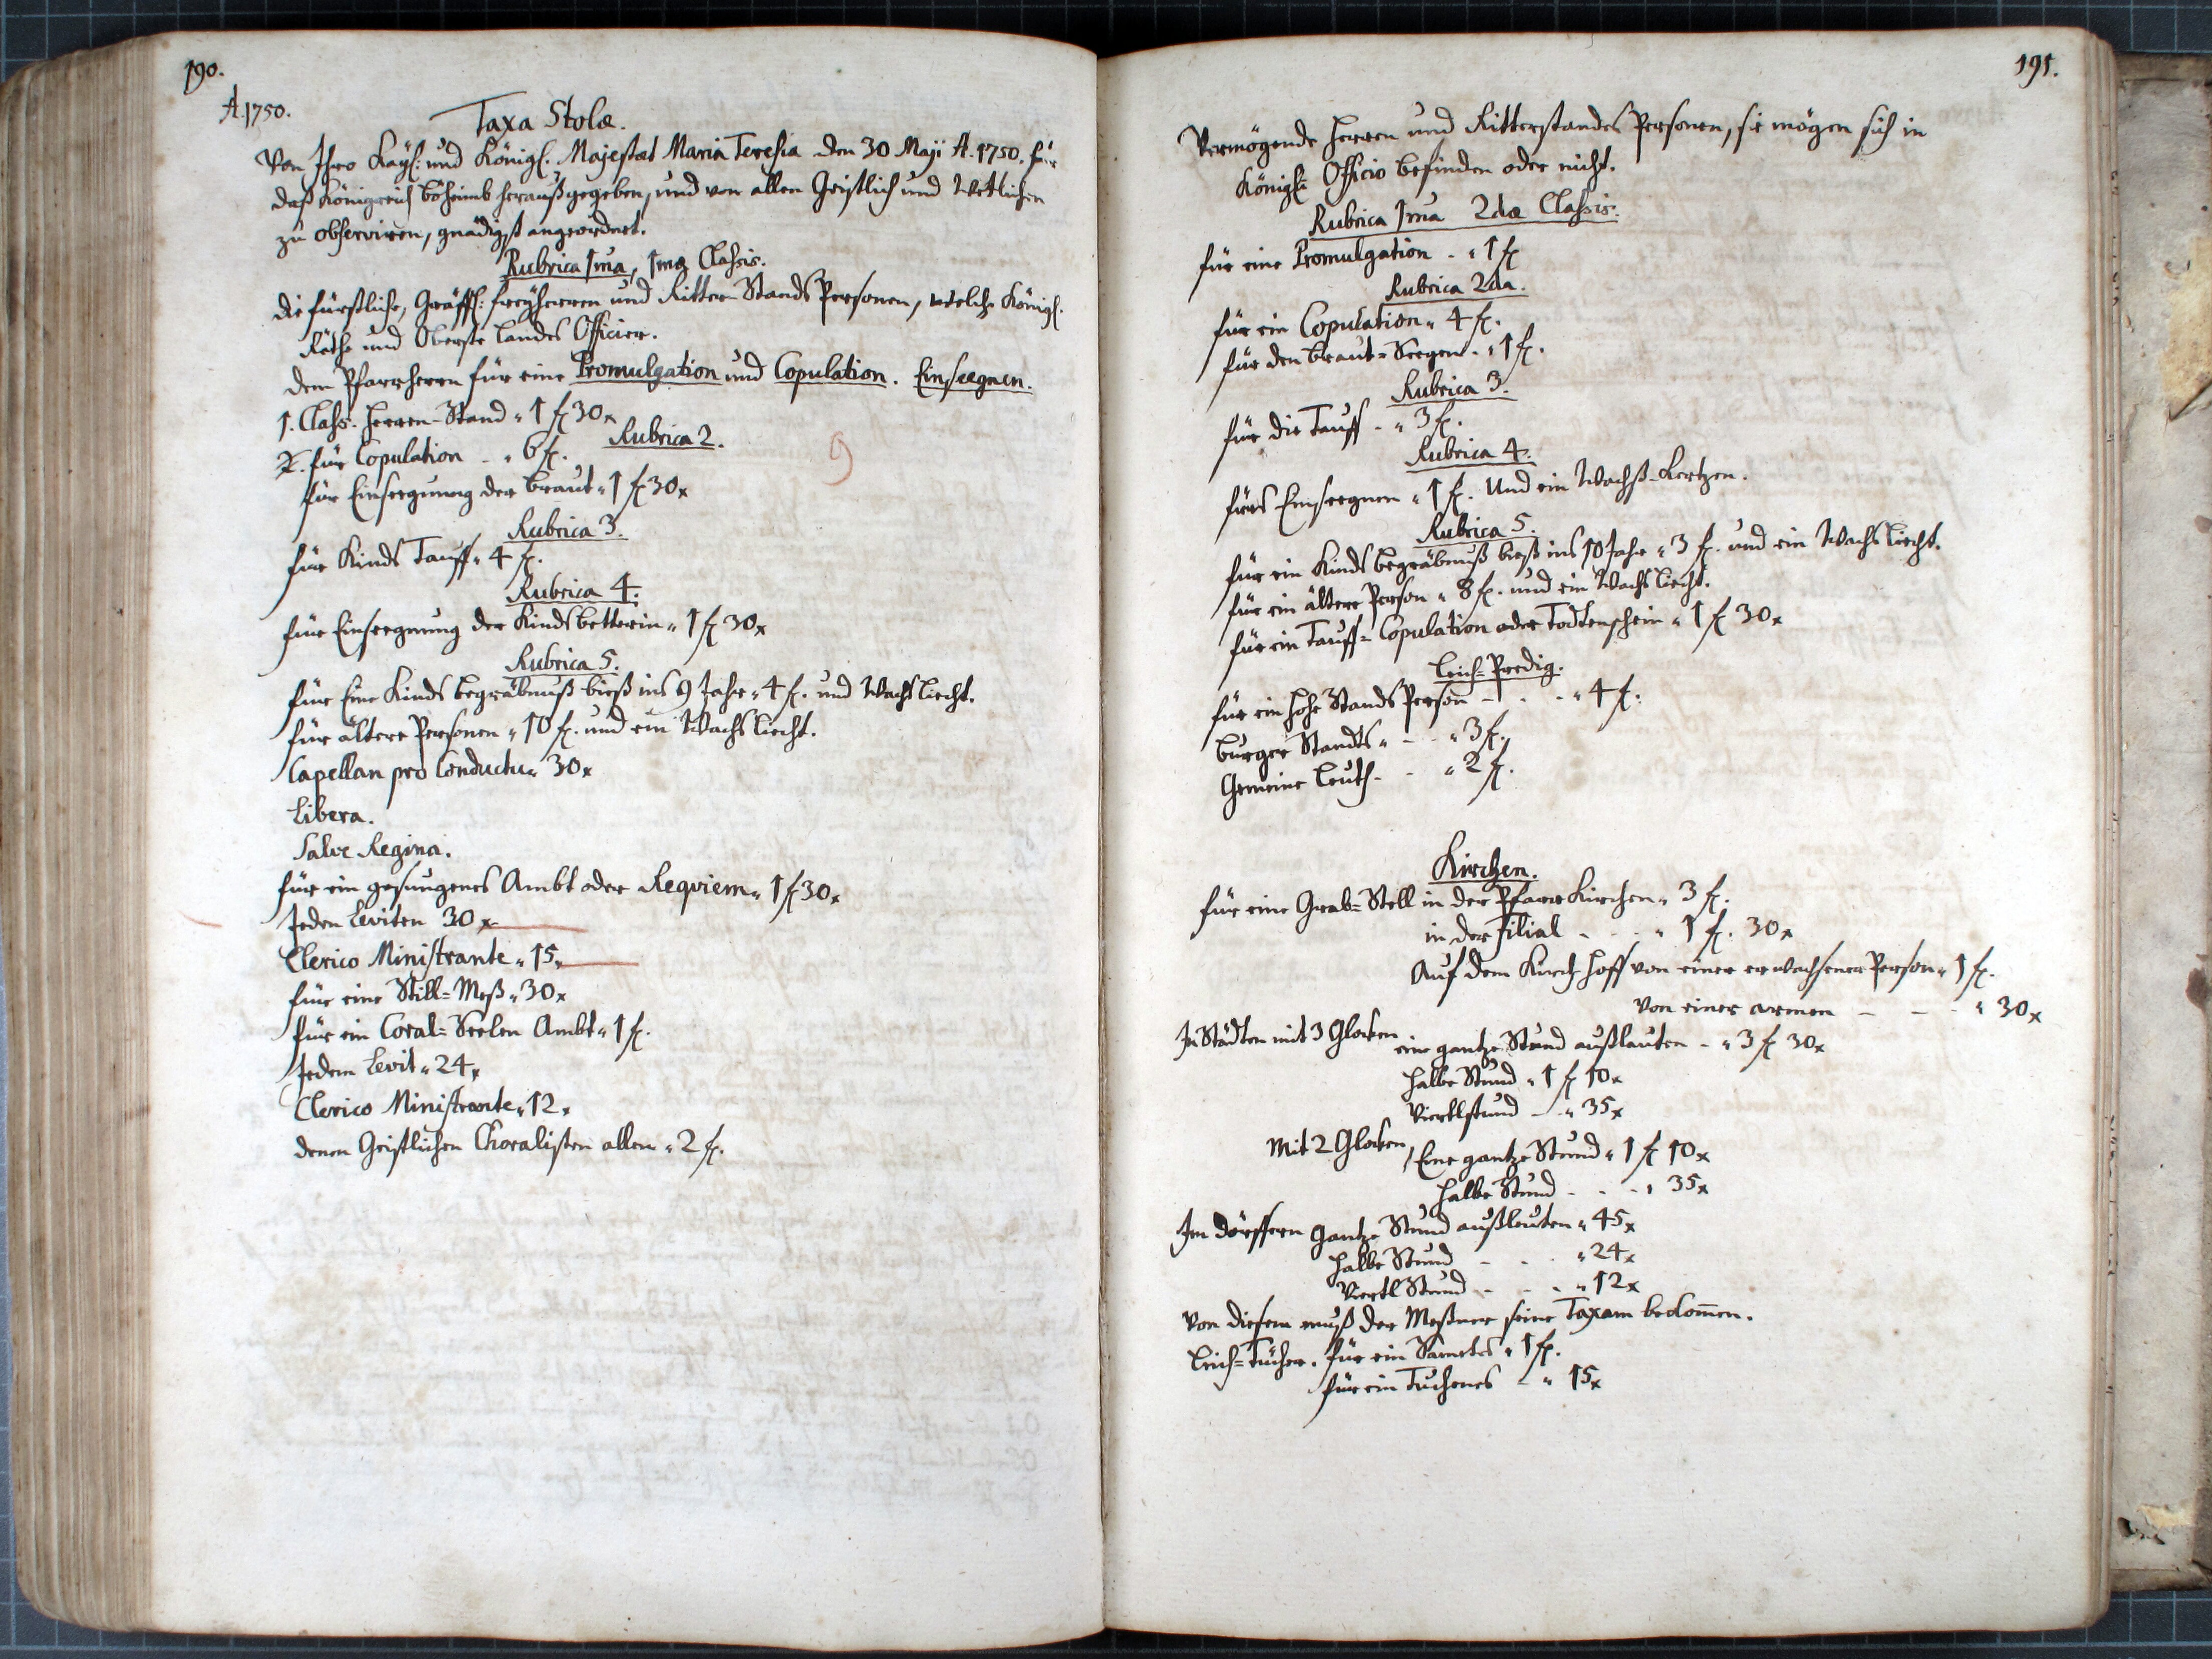 190.
A. 1750.
Taxa Stolæ.
Von Ihro Kaÿs: und Königl: Majestat Maria Teresia den 30 Maji A. 1750. für
daß Königreich böheimb heraußgegeben, und von allen Geistlich und Weltlichen
zu observiren, gnädigst angeordnet.
Rubrica 1ma, 1mæ Classis.
die fürstliche, Gräffl: freÿherren und Ritter Stands Personen, welche Königl:
Räthe und Oberste Landes Officier.
dem Pfarrherrn für eine Promulgation und Copulation. Einseegnen.
1. Class. Herren-Stand " 1 f 30 x
Rubrica 2.
2. für Copulation - " 6 f.
für Einseegnung der braut " 1 f 30 x
Rubrica 3.
für Kinds Tauff " 4 f.
Rubrica 4.
für Einseegnung der Kindsbetterin " 1 f 30 x
Rubrica 5.
für Eine Kinds begräbnuß bieß ins 9 Jahr " 4 f. und Wachsliecht.
für ältere Personen " 10 f. und ein Wachsliecht.
Capellan pro Conductu " 30 x
Libera.
Salve Regina.
für ein gesungenes Ambt oder Reqviem " 1 f 30 x
Jeden Leviten 30 x
Clerico Ministrante " 15 x
für eine Still=Meß " 30 x
für ein Coral=Seelen Ambt " 1 f.
Jedem Levit " 24 x
Clerico Ministrante " 12 x
denen Geistlichen Choralisten allen " 2 f.
9
191.
Vermögende Herren und Ritterstandes Personen, sie mögen sich in
Königl: Officio befinden oder nicht.
Rubrica 1ma 2dæ Classis.
für eine Promulgation - " 1 f
Rubrica 2da.
für ein Copulation " 4 f.
für den braut=Seegen - " 1 f.
Rubrica 3.
für die Tauff - " 3 f.
Rubrica 4.
fürs Einseegnen " 1 f. Und ein Wachß-Kertzen.
Rubrica 5.
für ein Kinds begräbnuß bieß ins 10 Jahr " 3 f. und ein Wachsliecht.
für ein ältere Person " 8 f. und ein Wachsliecht.
für ein Tauff= Copulation oder Todtenschein " 1 f 30 x
Leich=Predig.
für ein hohe Stands Person - - - " 4 f.
burger Standts " - - " 3 f.
Gemeine Leuth - - " 2 f.
Kirchen.
für eine Grab=Stell in der Pfarr Kirchen " 3 f.
in der Filial - - - " 1 f. 30 x
Auf dem Kirch Hoff von einer erwachsener Person " 1 f.
Von einer armen - - - " 30 x
In Städten mit 3 Glocken eine gantze Stund außlauten - " 3 f 30 x
halbe Stund " 1 f 10 x
Viertlstund - - " 35 x
Mit 2 Glocken, Eine gantze Stund " 1 f 10 x
halbe Stund - - - " 35 x
Im dörffern gantze Stund außleuten " 45 x
halbe Stund - - - " 24 x
Viertl Stund - - - " 12 x
Von diesem muß der Meßner seine Taxam bekomen.
Leich=Tücher. für ein Sametes " 1 f.
für ein Tuchenes - " 15 x